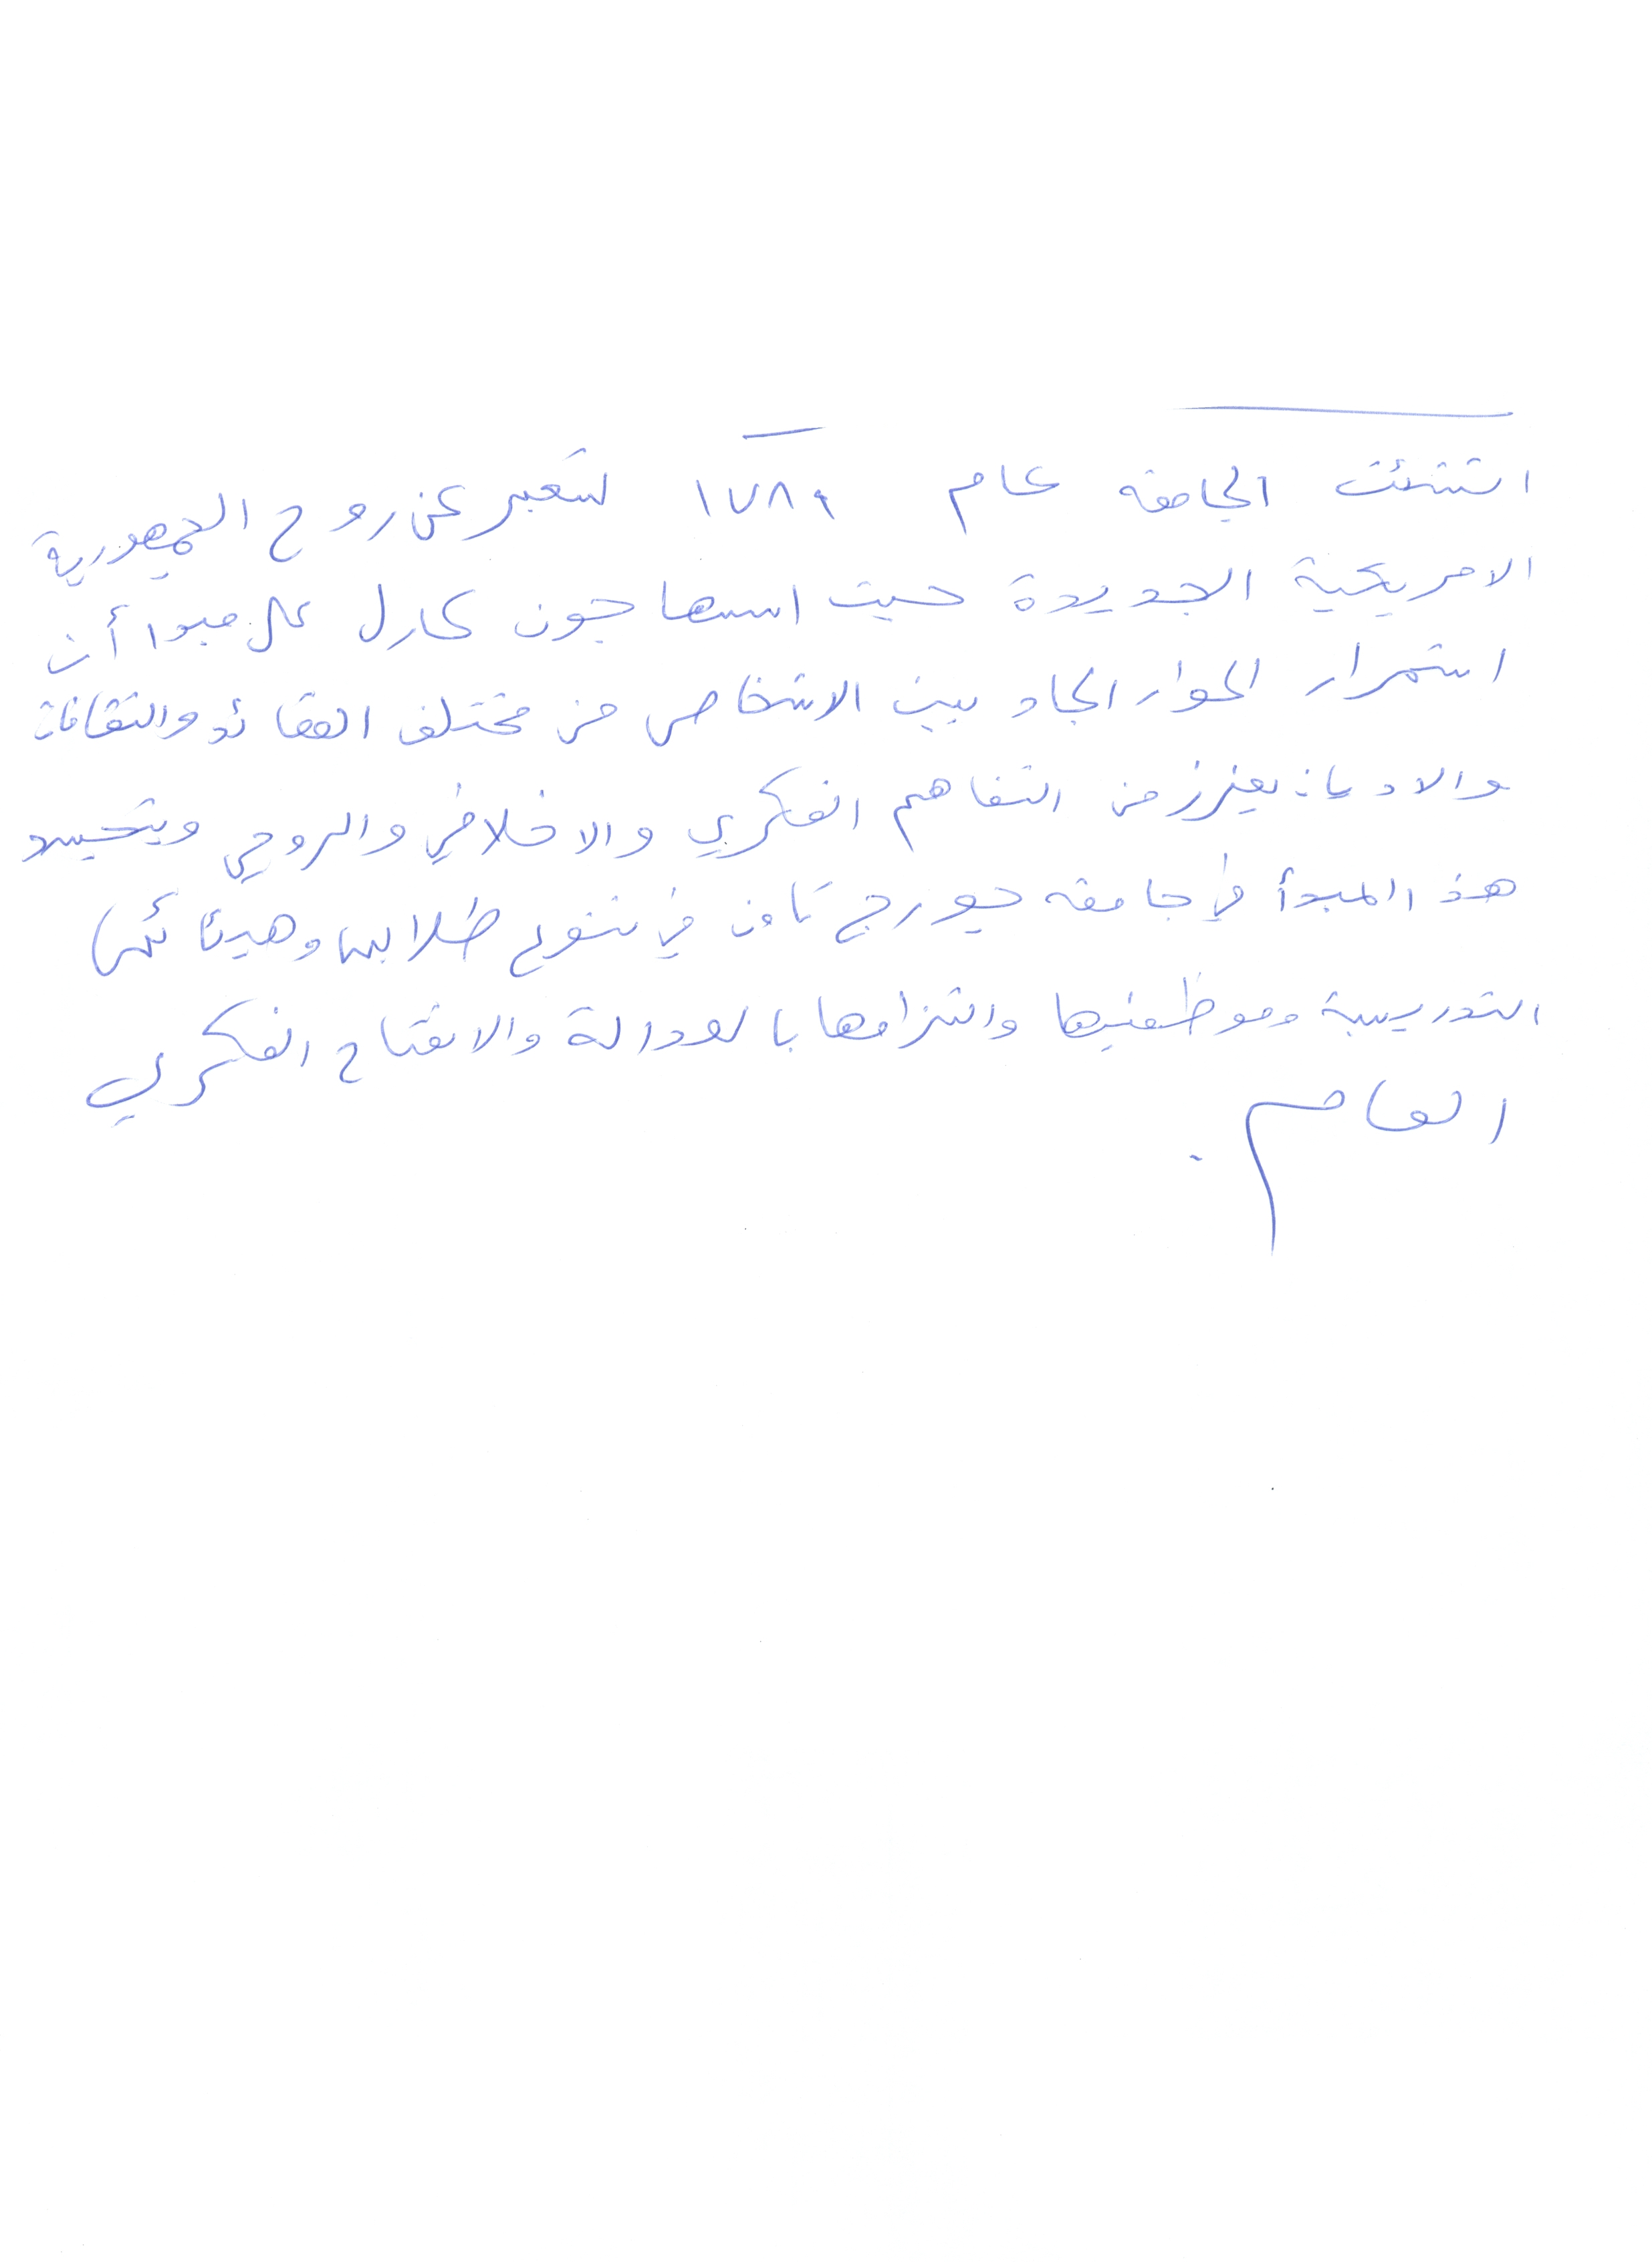 انشئت الجامعة عام ١٧٨٩ لتعبر عن روح الجمهورية
الامريكية الجديدة حيث اسسها جون كارل على مبدا أن
استمرار الحوار الجاد بين الاشخاص من مختلف العقائد والثقافات
والاديان يعزز من التفاهم الفكري والاخلاقي والروحي ويتجسد
هذ المبدأ في جامعه جورج تاون في تنوع طلابها وهيئاتها
التدريسية وموظفيها والتزامها بالعدالة والانفتاح الفكري
العام .